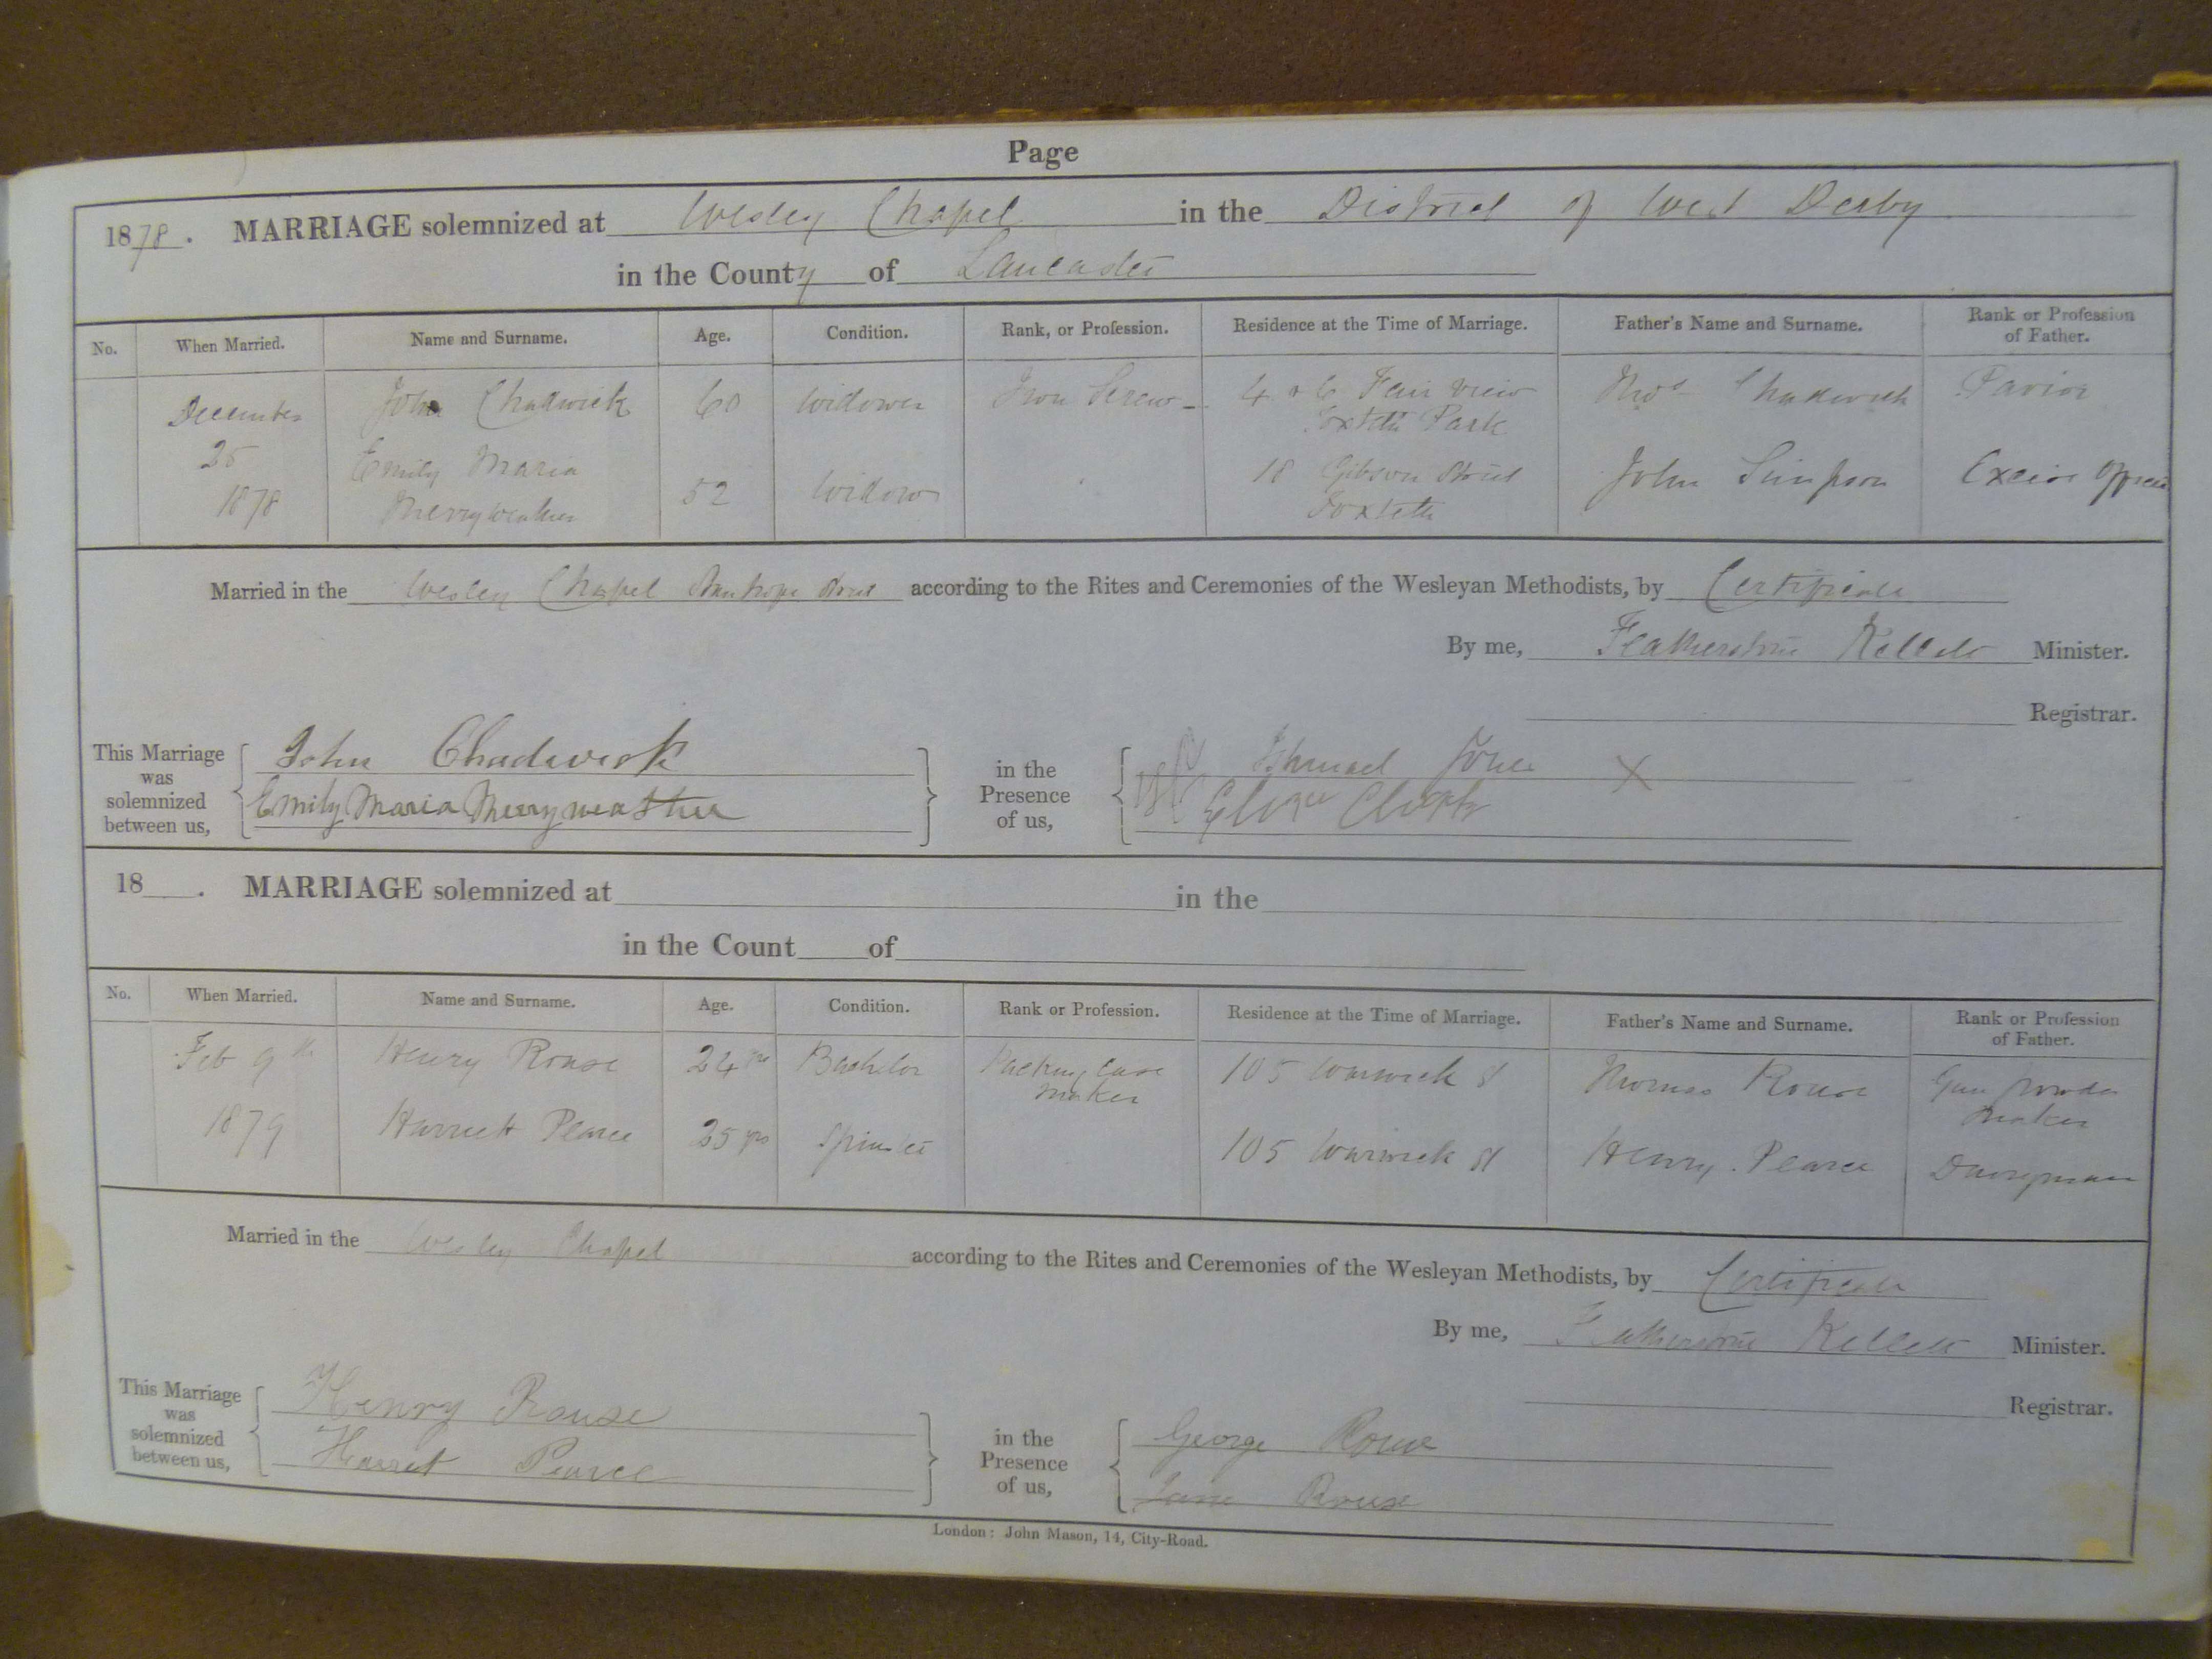 Page
1878. MARRIAGE solemnized at Wesley Chapel in the District of West Derby
in the County of Lancaster
No. When Married. Name and Surname. Age. Condition. Rank, or Profession. Residence at the Time of Marriage. Father's Name and Surname. Rank or Profession of Father.
December 25 1878 John Chadwick 60 Widower Iron Screw - 4 Fair View Toxteth Park Thos Chadwick Pavior
Emily Maria Merryweather 52 Widow 18 Gibson Street Toxteth John Simpson Excise Officer
Married in the Wesley Chapel Stanhope Street according to the Rites and Ceremonies of the Wesleyan Methodists, by Certificate
By me, Featherstone Kellett Minister.
Registrar.
This Marriage was solemnized between us, John Chadwick in the Presence of us, Ishmael Jones X
Emily Maria Merryweather
18 . MARRIAGE solemnized at in the
in the Count of
No. When Married. Name and Surname. Age. Condition. Rank or Profession. Residence at the Time of Marriage. Father's Name and Surname. Rank or Profession of Father.
Feb 9th 1879 Henry Rouse 24 yrs Bachelor Packing Case maker 105 Warwick St Thomas Rouse Gun powder maker
Harriett Pearce 25 yrs Spinster 105 Warwick St Henry Pearce Dairyman
Married in the Wesley Chapel according to the Rites and Ceremonies of the Wesleyan Methodists, by Certificate
By me, Featherstone Kellett Minister.
Registrar.
This Marriage was solemnized between us, Henry Rouse in the Presence of us, George Rouse
Harret Pearce Jane Rouse
London: John Mason, 14, City-Road.